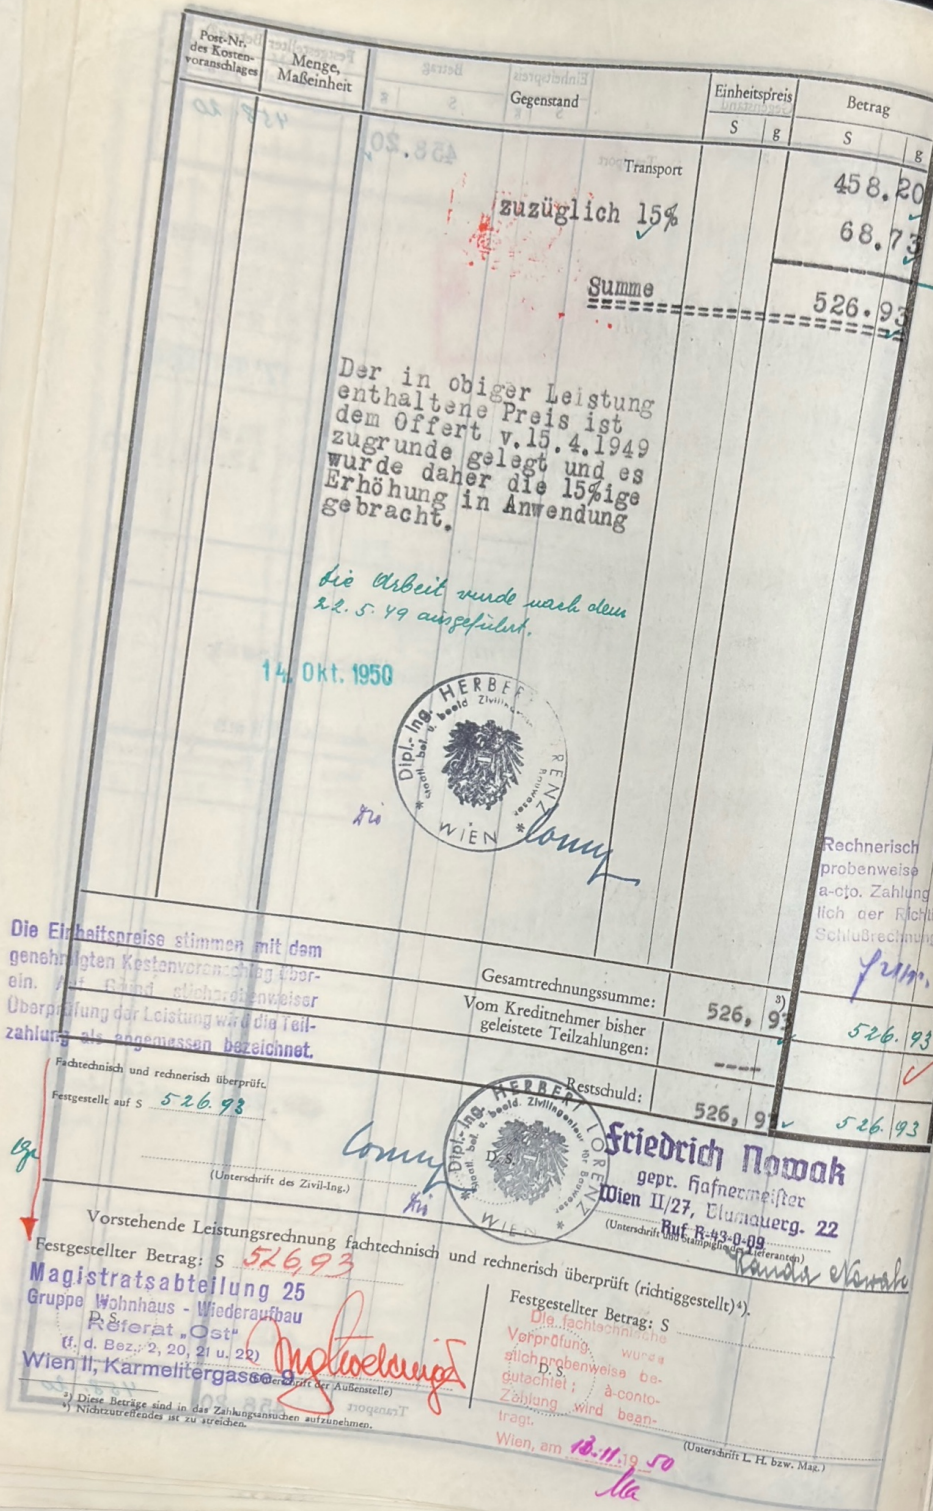 Post-Nr.
des Kosten-
voranschlages
Menge,
Maßeinheit
Gegenstand
Einheitspreis
S g
Betrag
S g
Transport 458.20
zuzüglich 15% 68.73
Summe 526.93
Der in obiger Leistung
enthaltene Preis ist
dem Offert v.15.4.1949
zugrunde gelegt und es
wurde daher die 15%ige
Erhöhung in Anwendung
gebracht.
die Arbeit wurde nach dem
22.5.49 ausgeführt.
14. Okt. 1950
Dipl.-Ing. HERBE RENZ
WIEN
Rechnerisch
probenweise
a-cto. Zahlung
lich der Richt
Schlußrechnung
Die Einheitspreise stimmen mit dem
genehmigten Kostenvoranschlag über-
ein. Auf Grund stichprobenweiser
Überprüfung der Leistung wird die Teil-
zahlung als angemessen bezeichnet.
Gesamtrechnungssumme: 526,93 ³) 526.93
Vom Kreditnehmer bisher
geleistete Teilzahlungen: ----
Restschuld: 526,93 526.93
Fachtechnisch und rechnerisch überprüft.
Festgestellt auf S 526.93
(Unterschrift des Zivil-Ing.)
Dipl.-Ing. HERBERT LORENZ
staatl. bef. u. beeid. Zivilingenieur für Bauwesen
WIEN
D. S.
Friedrich Nowak
gepr. Hafnermeister
Wien II/27, Blumauerg. 22
Ruf R-43-0-09
(Unterschrift und Stampiglie des Lieferanten)
Nowak
Vorstehende Leistungsrechnung fachtechnisch und rechnerisch überprüft (richtiggestellt)⁴).
Festgestellter Betrag: S 526,93
Magistratsabteilung 25
Gruppe Wohnhaus - Wiederaufbau
D. S.
Referat „Ost“
(f. d. Bez.: 2, 20, 21 u. 22)
Wien II, Karmelitergasse 9
(Unterschrift der Außenstelle)
Festgestellter Betrag: S
Die fachtechnische
Verprüfung wurde
stichprobenweise be-
D. S.
gutachtet; à-conto-
Zahlung wird bean-
tragt.
Wien, am 13.11.1950
(Unterschrift L. H. bzw. Mag.)
³) Diese Beträge sind in das Zahlungsansuchen aufzunehmen.
⁴) Nichtzutreffendes ist zu streichen.